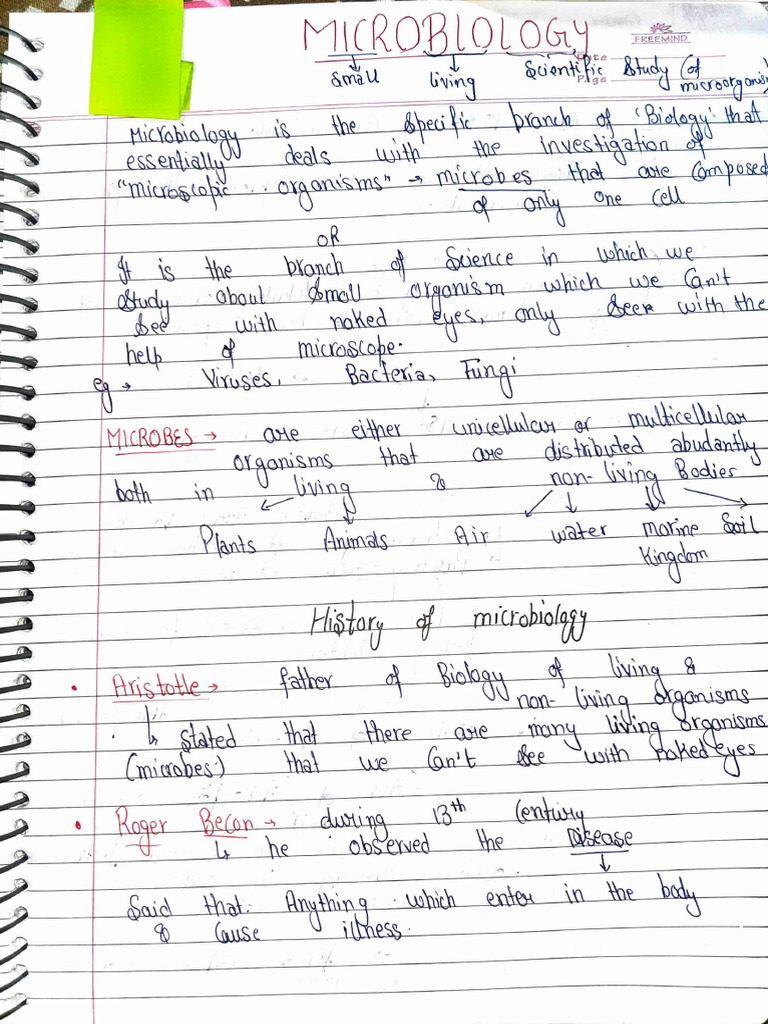 MICROBIOLOGY
FREEMIND
Date
Page
small living Scientific Study (of microorganism)
Microbiology is the specific branch of 'Biology' that
essentially deals with the investigation of
"microscopic organisms" → microbes that are composed
of only one cell
OR
It is the branch of Science in which we
study about small organism which we can't
see with naked eyes, only seen with the
help of microscope.
eg → Viruses, Bacteria, Fungi
MICROBES → are either unicellular or multicellular
organisms that are distributed abudantly
both in living & non-living Bodies
Plants Animals Air water marine Soil
Kingdom
History of microbiology
• Aristotle → father of Biology of living &
non-living organisms
↳ stated that there are many living organisms
(microbes) that we can't see with naked eyes
• Roger Becon → during 13th Century
↳ he observed the Disease
Said that Anything which enter in the body
& cause illness.